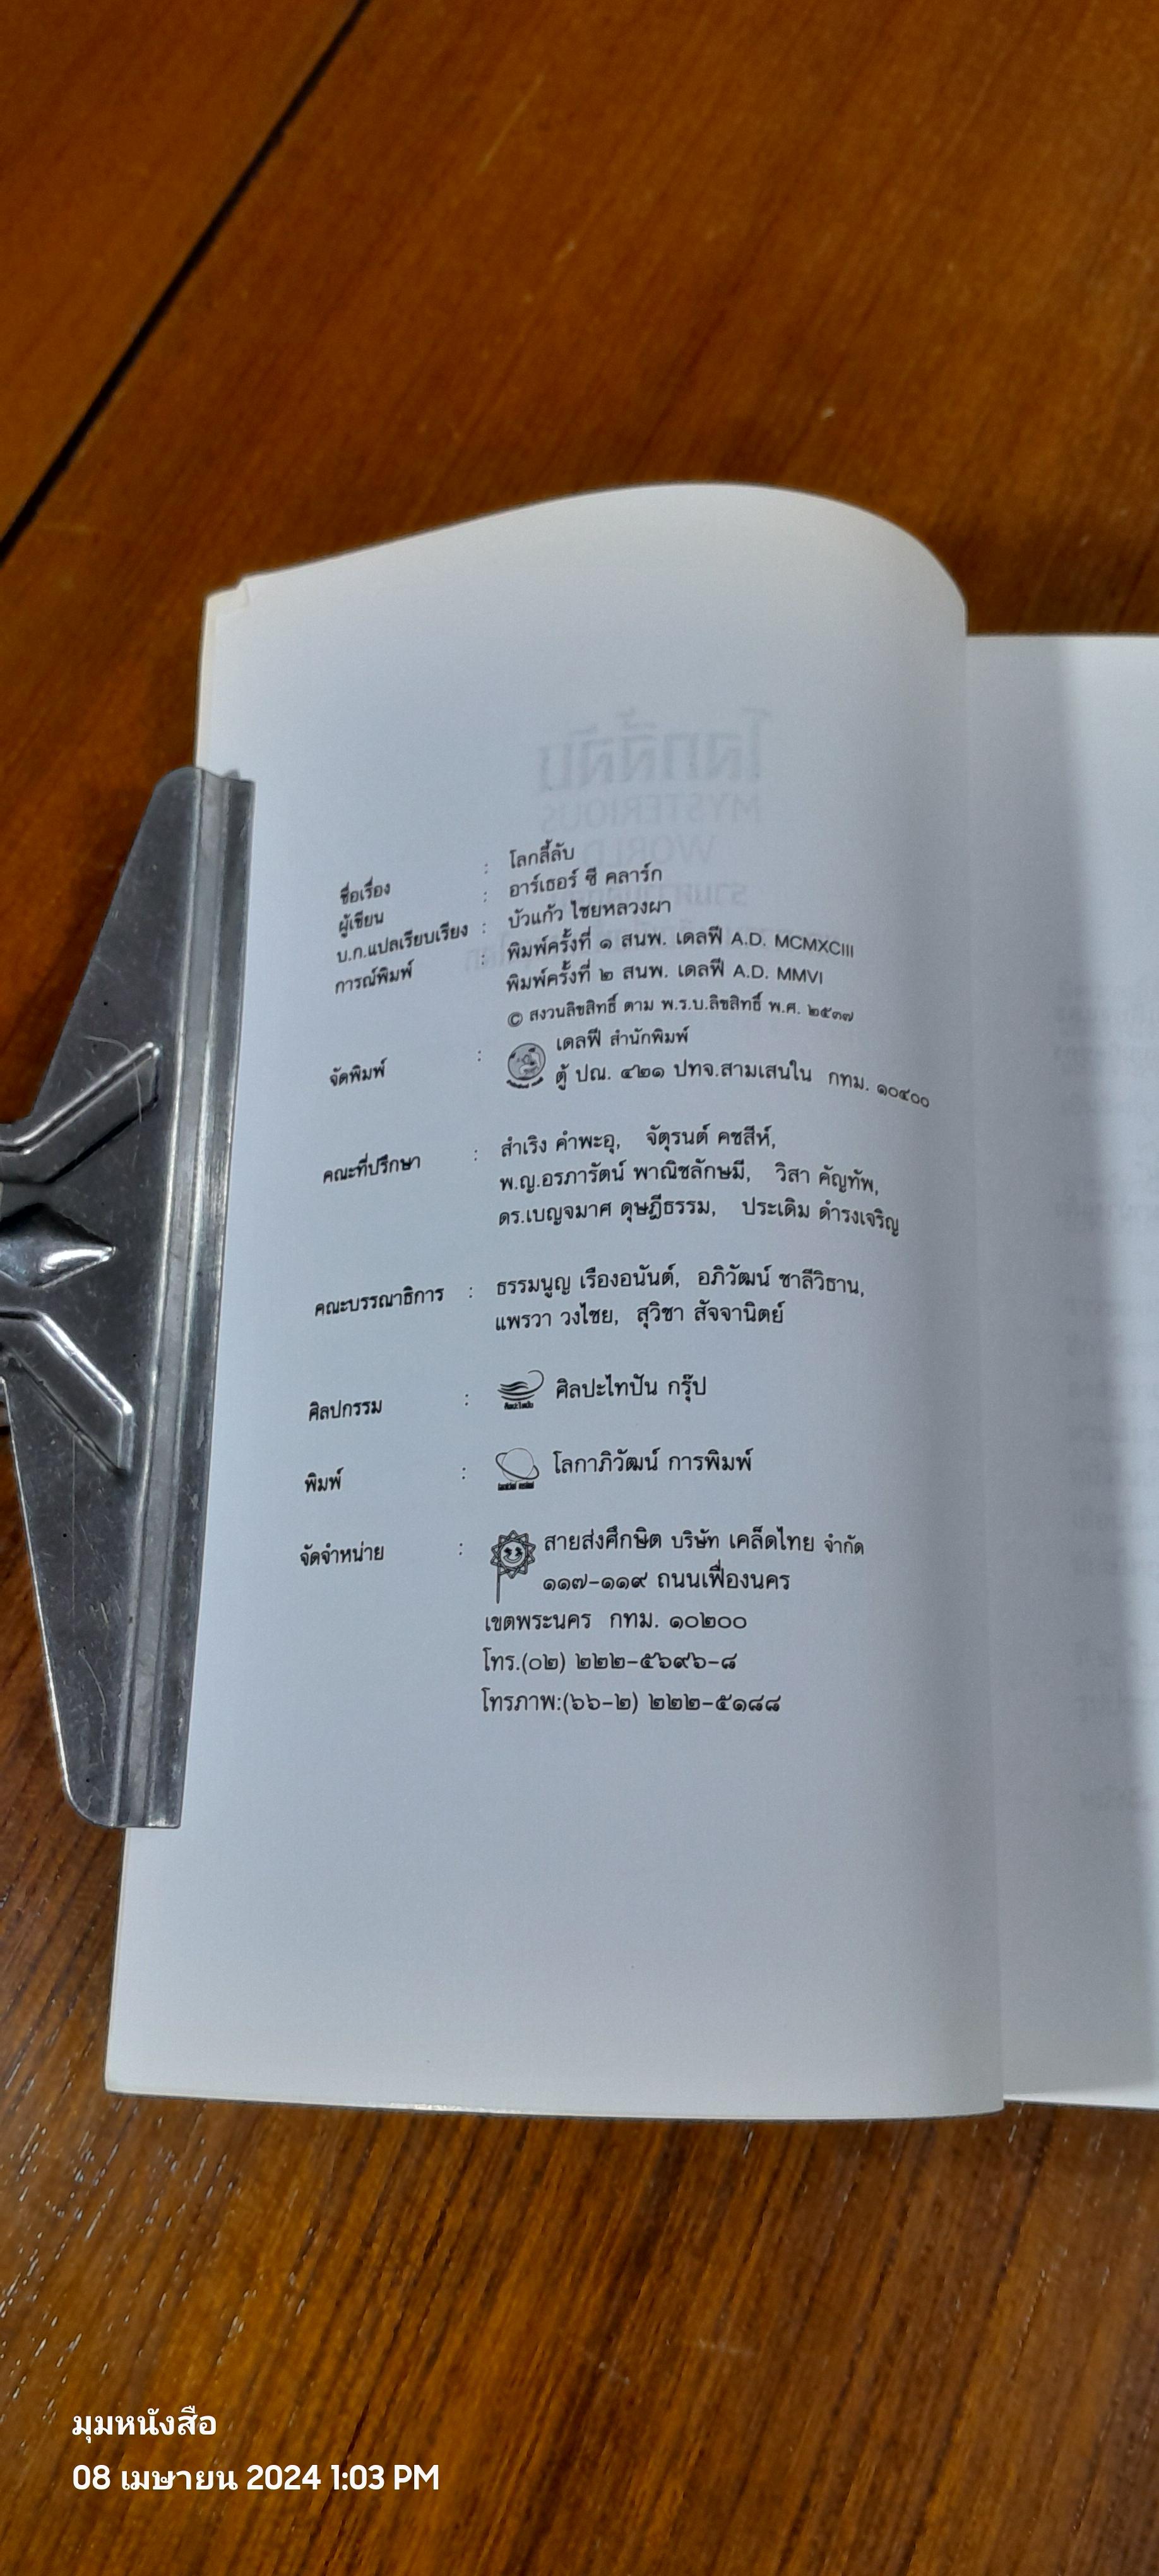 ชื่อเรื่อง : โลกลี้ลับ
ผู้เขียน : อาร์เธอร์ ซี คลาร์ก
บ.ก.แปลเรียบเรียง : บัวแก้ว ไชยหลวงผา
การณ์พิมพ์ : พิมพ์ครั้งที่ ๑ สนพ. เดลฟี A.D. MCMXCIII
พิมพ์ครั้งที่ ๒ สนพ. เดลฟี A.D. MMVI
© สงวนลิขสิทธิ์ ตาม พ.ร.บ.ลิขสิทธิ์ พ.ศ. ๒๕๓๗
จัดพิมพ์ : เดลฟี สำนักพิมพ์
ตู้ ปณ. ๔๒๑ ปทจ.สามเสนใน กทม. ๑๐๔๐๐
คณะที่ปรึกษา : สำเริง คำพะอุ, จัตุรนต์ คชสีห์,
พ.ญ.อรภารัตน์ พาณิชลักษมี, วิสา คัญทัพ,
ดร.เบญจมาศ ดุษฎีธรรม, ประเดิม ดำรงเจริญ
คณะบรรณาธิการ : ธรรมนูญ เรืองอนันต์, อภิวัฒน์ ชาลีวิธาน,
แพรวา วงไชย, สุวิชา สัจจานิตย์
ศิลปกรรม : ศิลปะไทปัน กรุ๊ป
พิมพ์ : โลกาภิวัฒน์ การพิมพ์
จัดจำหน่าย : สายส่งศึกษิต บริษัท เคล็ดไทย จำกัด
๑๑๗-๑๑๙ ถนนเฟื่องนคร
เขตพระนคร กทม. ๑๐๒๐๐
โทร.(๐๒) ๒๒๒-๕๖๙๖-๘
โทรภาพ:(๖๖-๒) ๒๒๒-๕๑๘๘
มุมหนังสือ
08 เมษายน 2024 1:03 PM